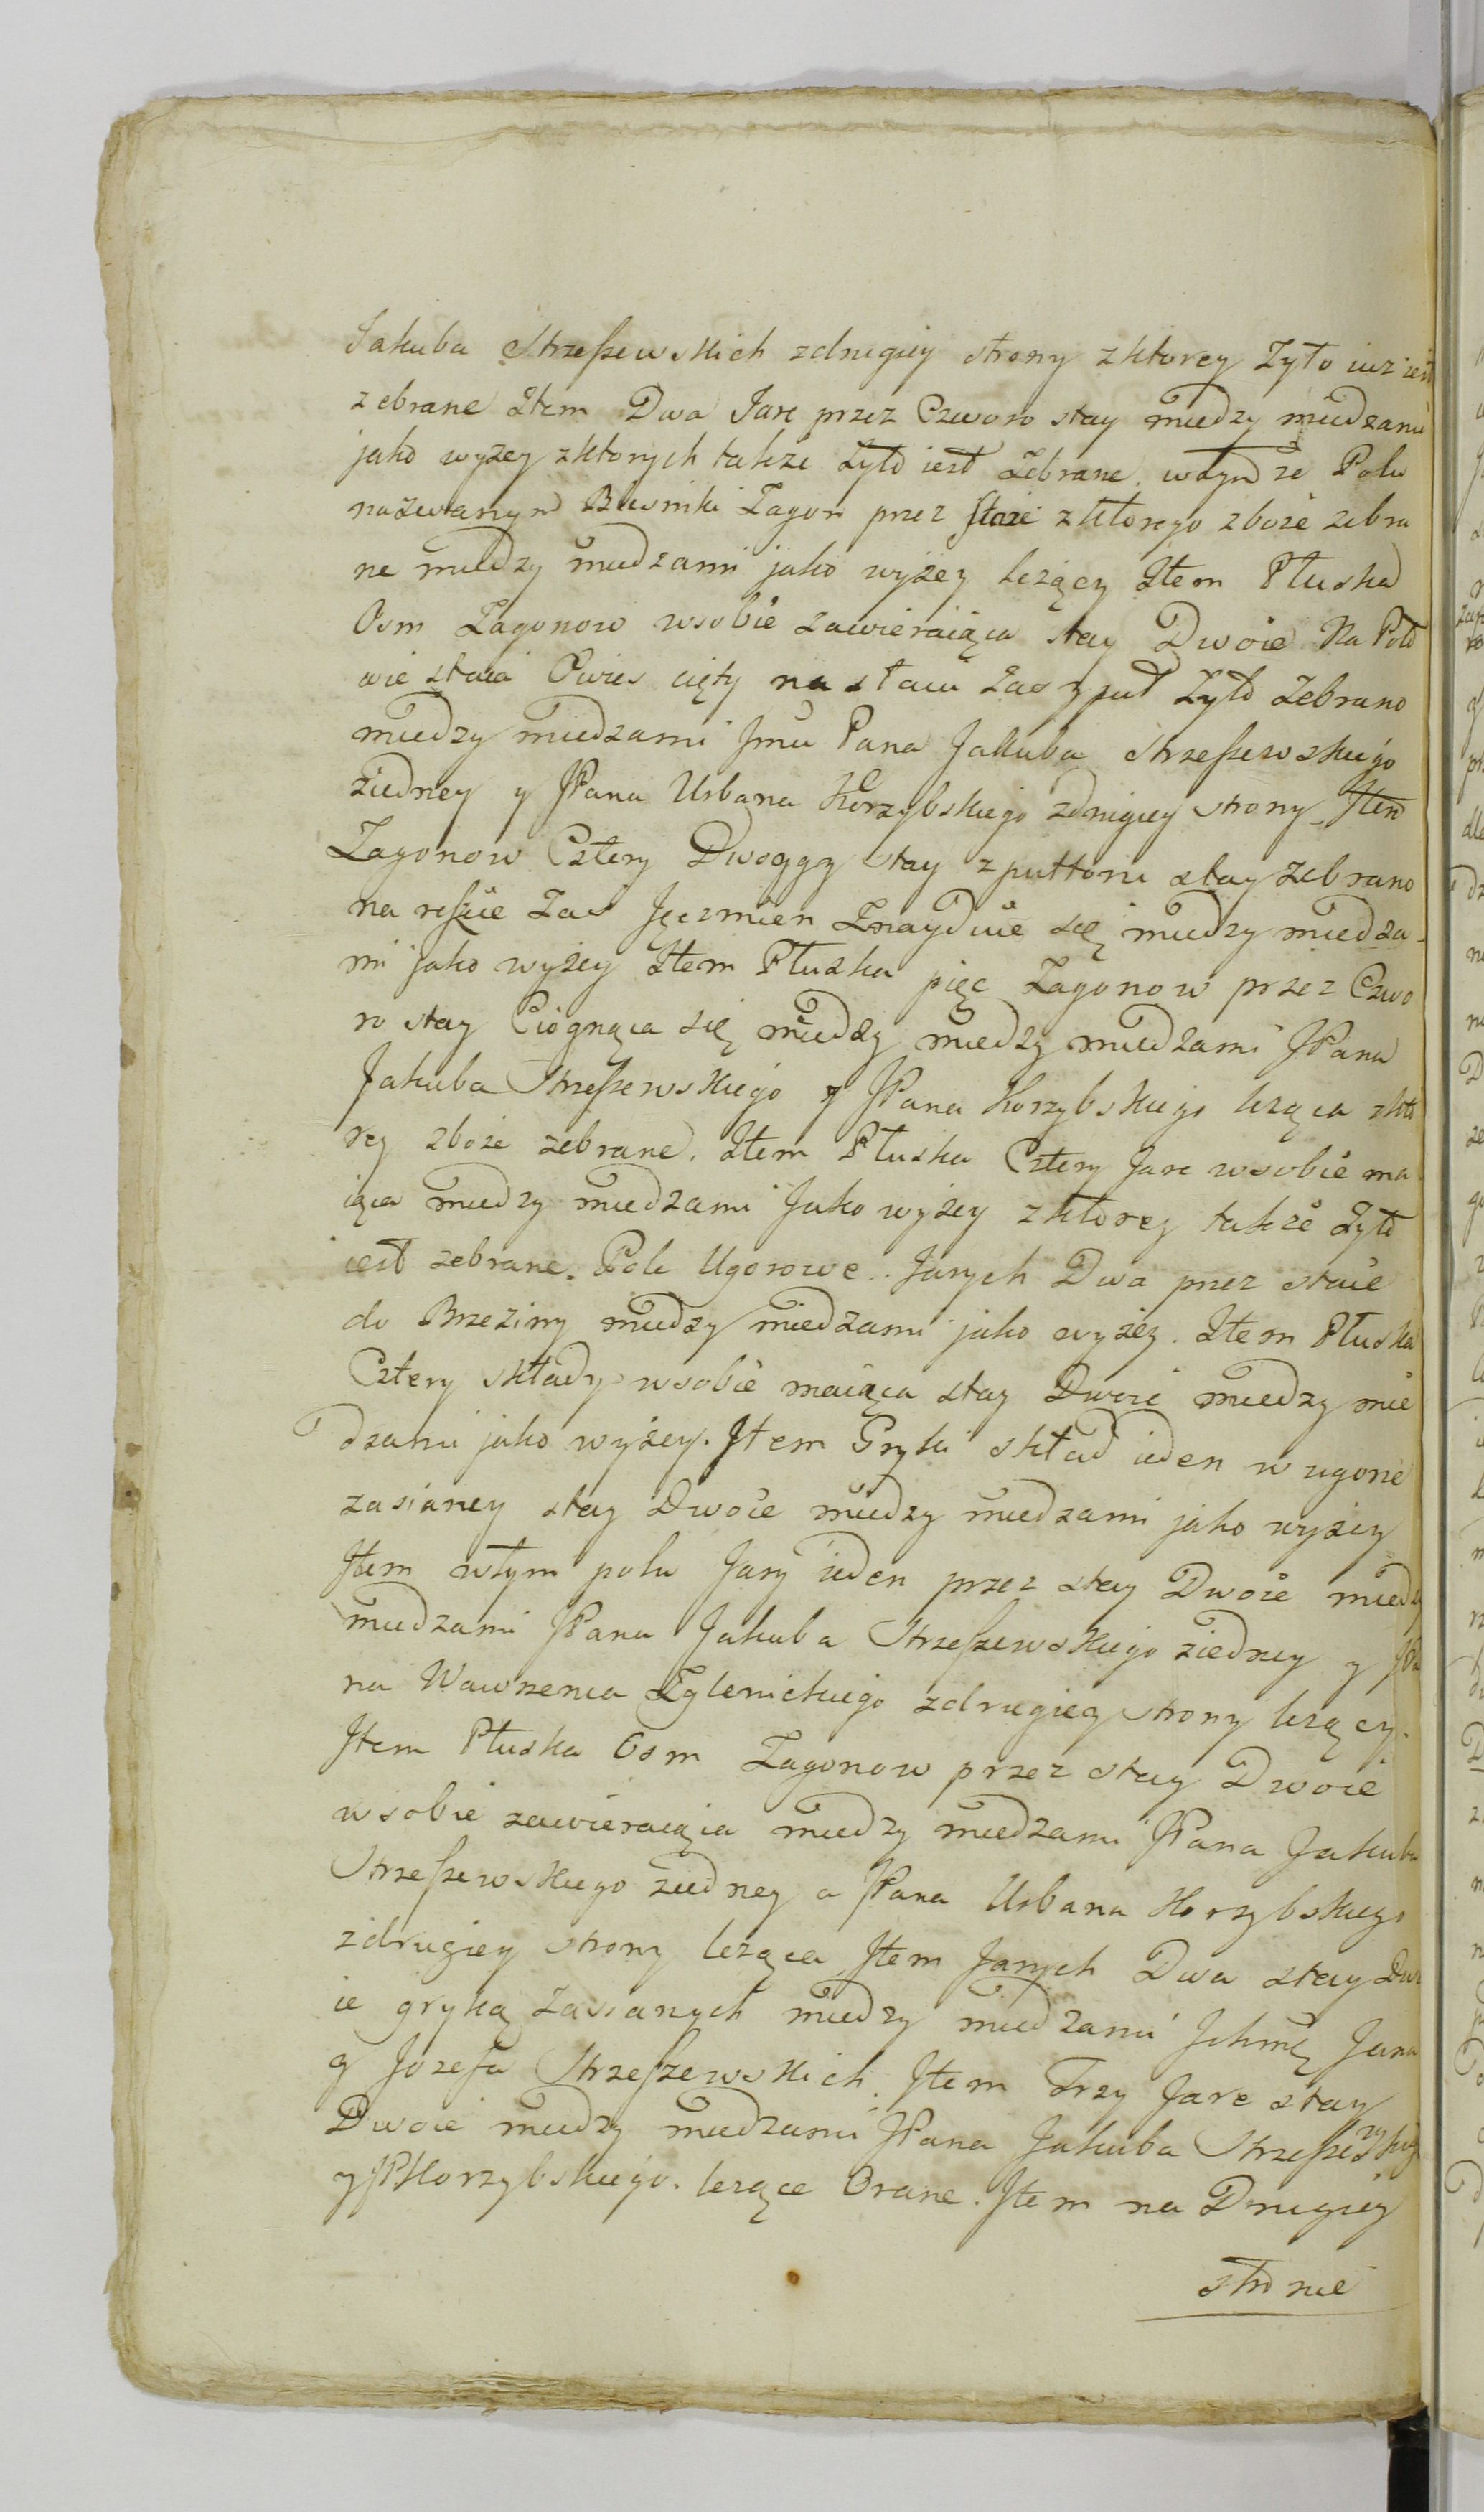 Jakuba Strzeszewskich zdrugiey strony zktorey Zyto iuz iest
zebrane Item Dwa Jare przez Czworo stay miedzy miedzami
jako wyzey zktorych takze Zyto iest Zebrane. wtymze Polu
nazwanym Zagon przez staie zktorego zboze zebra
ne miedzy miedzami jako wyzey lezący Item Płuska
Osm Zagonow wsobie zawieraiąca stay Dwoie Na Poło
wie staia Owies cięty na staiu zas y puł Zyto Zebrano
miedzy miedzami Jmci Pana Jakuba Strzeszewskiego
ziedney y JPana Urbana Korzybskiego zdrugiey strony Item
Zagonow Cztery Dwoygy stay zputtora stay zebrano
na reszcie Zas Jęczmien Znayduie się miedzy miedza-
mi jako wyzey Item Płuska pięc Zagonow przez Czwo
ro stay Ciognąca się miedzy miedzy miedzami JPana
Jakuba Strzeszewskiego y JPana Korzybskiego leząca zkto
rey zboze zebrane. Item Płuska Cztery Jare wsobie ma
iąca miedzy miedzami Jako wyzey zktorey takze Zyto
iest zebrane. Pole Ugorowe.. Jarych Dwa przez staie
do Brzeziny miedzy miedzami jako wyzey. Item Płuska
Cztery składy wsobie maiąca stay Dwoie miedzy mie
dzami jako wyzey. Item Gryki skład ieden w ugorze
zasianey stay Dwoie miedzy miedzami jako wyzey
Item wtym polu Jary ieden przez stay Dwoie miedzy
miedzami JPana Jakuba Strzeszewskiego ziedney y JPa
na Wawrzenca Zglenickiego zdrugiey strony lezący.
Item Płuska Osm Zagonow przez stay Dwoie
wsobie zawieraiąca miedzy miedzami JPana Jakuba
Strzeszewskiego ziedney a JPana Urbana Korzybskiego
zdrugiey strony leząca Item Jarych Dwa stay Dwo
ie gryką zasianych miedzy miedzami Ichmę Jana
y Jozefa Strzeszewskich. Item Trzy Jare stay
Dwoie miedzy miedzami JPana Jakuba
y JPKorzybskiego. lezące Orane. Item na Drugiey
stronie